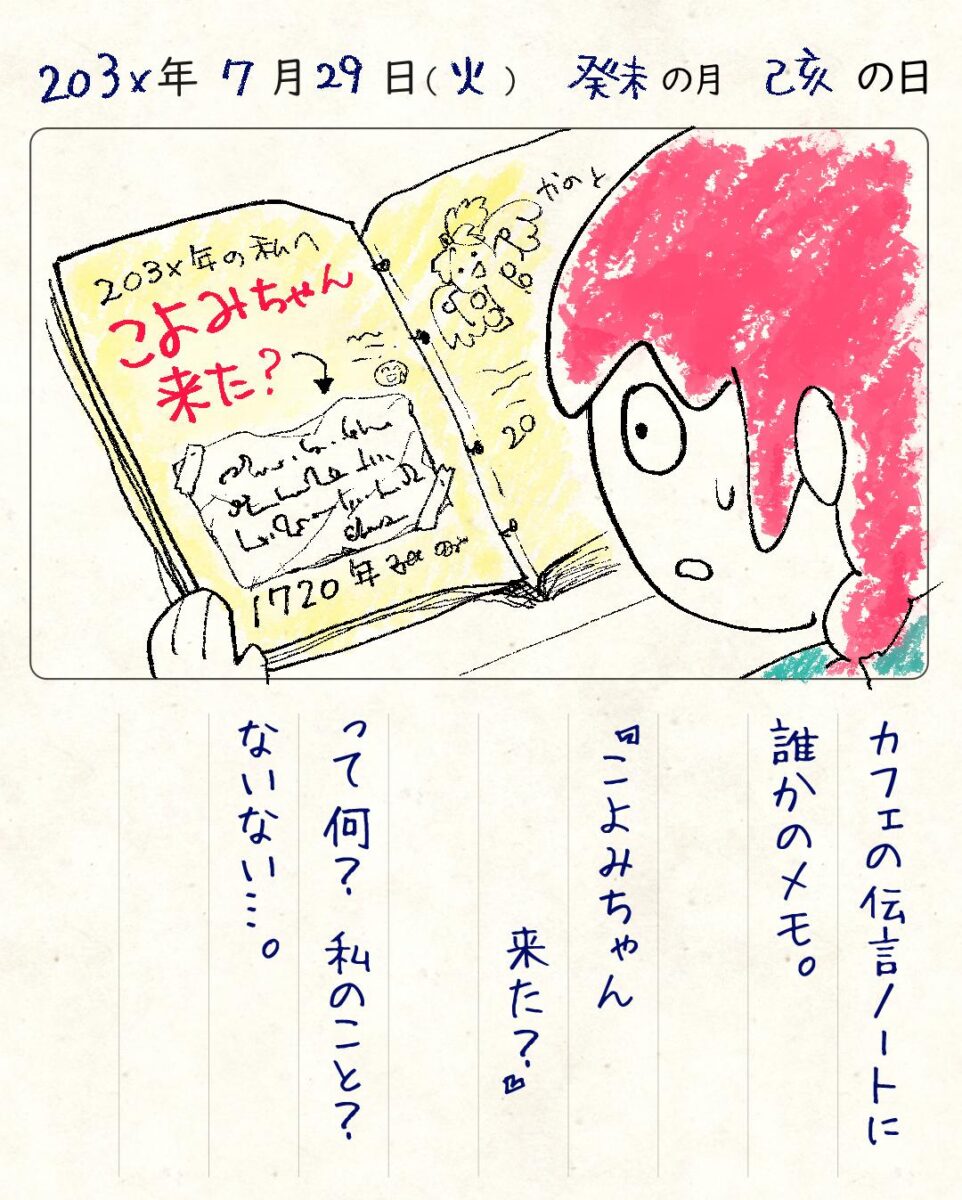 203x年 7月29日(火) 癸未の月 己亥の日
203x年の私へ
こよみちゃん
来た?
1720年
やのと
20
カフェの伝言ノートに
誰かのメモ。
『こよみちゃん
来た?』
って何? 私のこと?
ないない…。